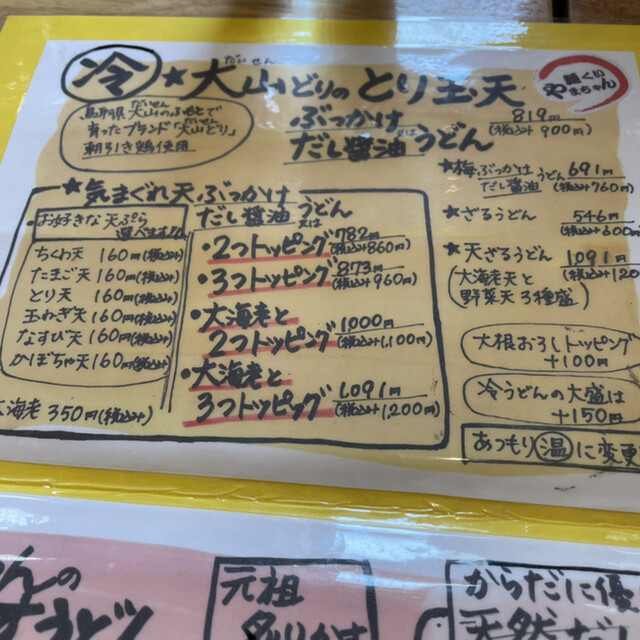 冷
だいせん
★大山どりのとり玉天
麺くい
やまちゃん
鳥取県大山のふもとで
だいせん
育ったブランド「大山どり」
朝引き鶏使用
ぶっかけ又は
だし醤油うどん
819円
(税込み900円)
★梅ぶっかけ
だし醤油うどん
691円
(税込み760円)
★ざるうどん 546円
(税込み600円)
★天ざるうどん 1091円
(税込み1,20
(大海老天と
野菜天3種盛)
★気まぐれ天ぶっかけ又は
だし醤油うどん
・お好きな天ぷら
選べます
ちくわ天 160円(税込み)
たまご天 160円(税込み)
とり天 160円(税込み)
玉ねぎ天 160円(税込み)
なすび天 160円(税込み)
かぼちゃ天 160円(税込み)
大海老 350円(税込み)
・2つトッピング 782円
(税込み860円)
・3つトッピング 873円
(税込み960円)
・大海老と
2つトッピング 1000円
(税込み1,100円)
・大海老と
3つトッピング 1,091円
(税込み1,200円)
大根おろしトッピング
+100円
冷うどんの大盛は
+150円
あつもり温に変更
んの
うどん
元祖
からだに優
天然だし